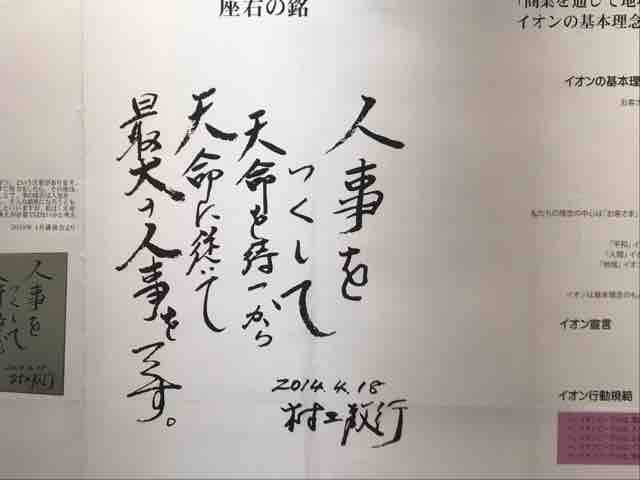 座右の銘
人事を
つくして
天命を待つから
天命に従って
最大の人事をつくす。
2014.4.18
村上教行
「商業を通じて地
イオンの基本理念
イオンの基本理
お客さ
私たちの理念の中心は「お客さま」
「平和」イ
「人間」イオ
「地域」イオン
イオンは基本理念のも
イオン宣言
イオン行動規範
人事を
つくして